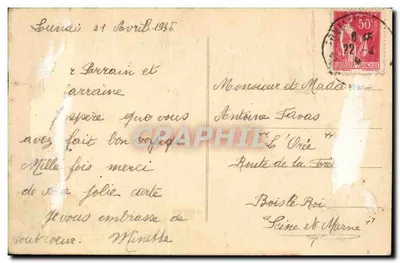 Lundi 21 Avril 1935
r Parrain et
arraine
espère que vous
avez fait bon voyage
Mille fois merci
de v a jolie carte
Je vous embrasse de
tout coeur. Minette
50c
Monsieur et Madame
Antoine
"L'Orée"
Route de la Forêt
Bois le Roi
Seine et Marne
CPARHIL